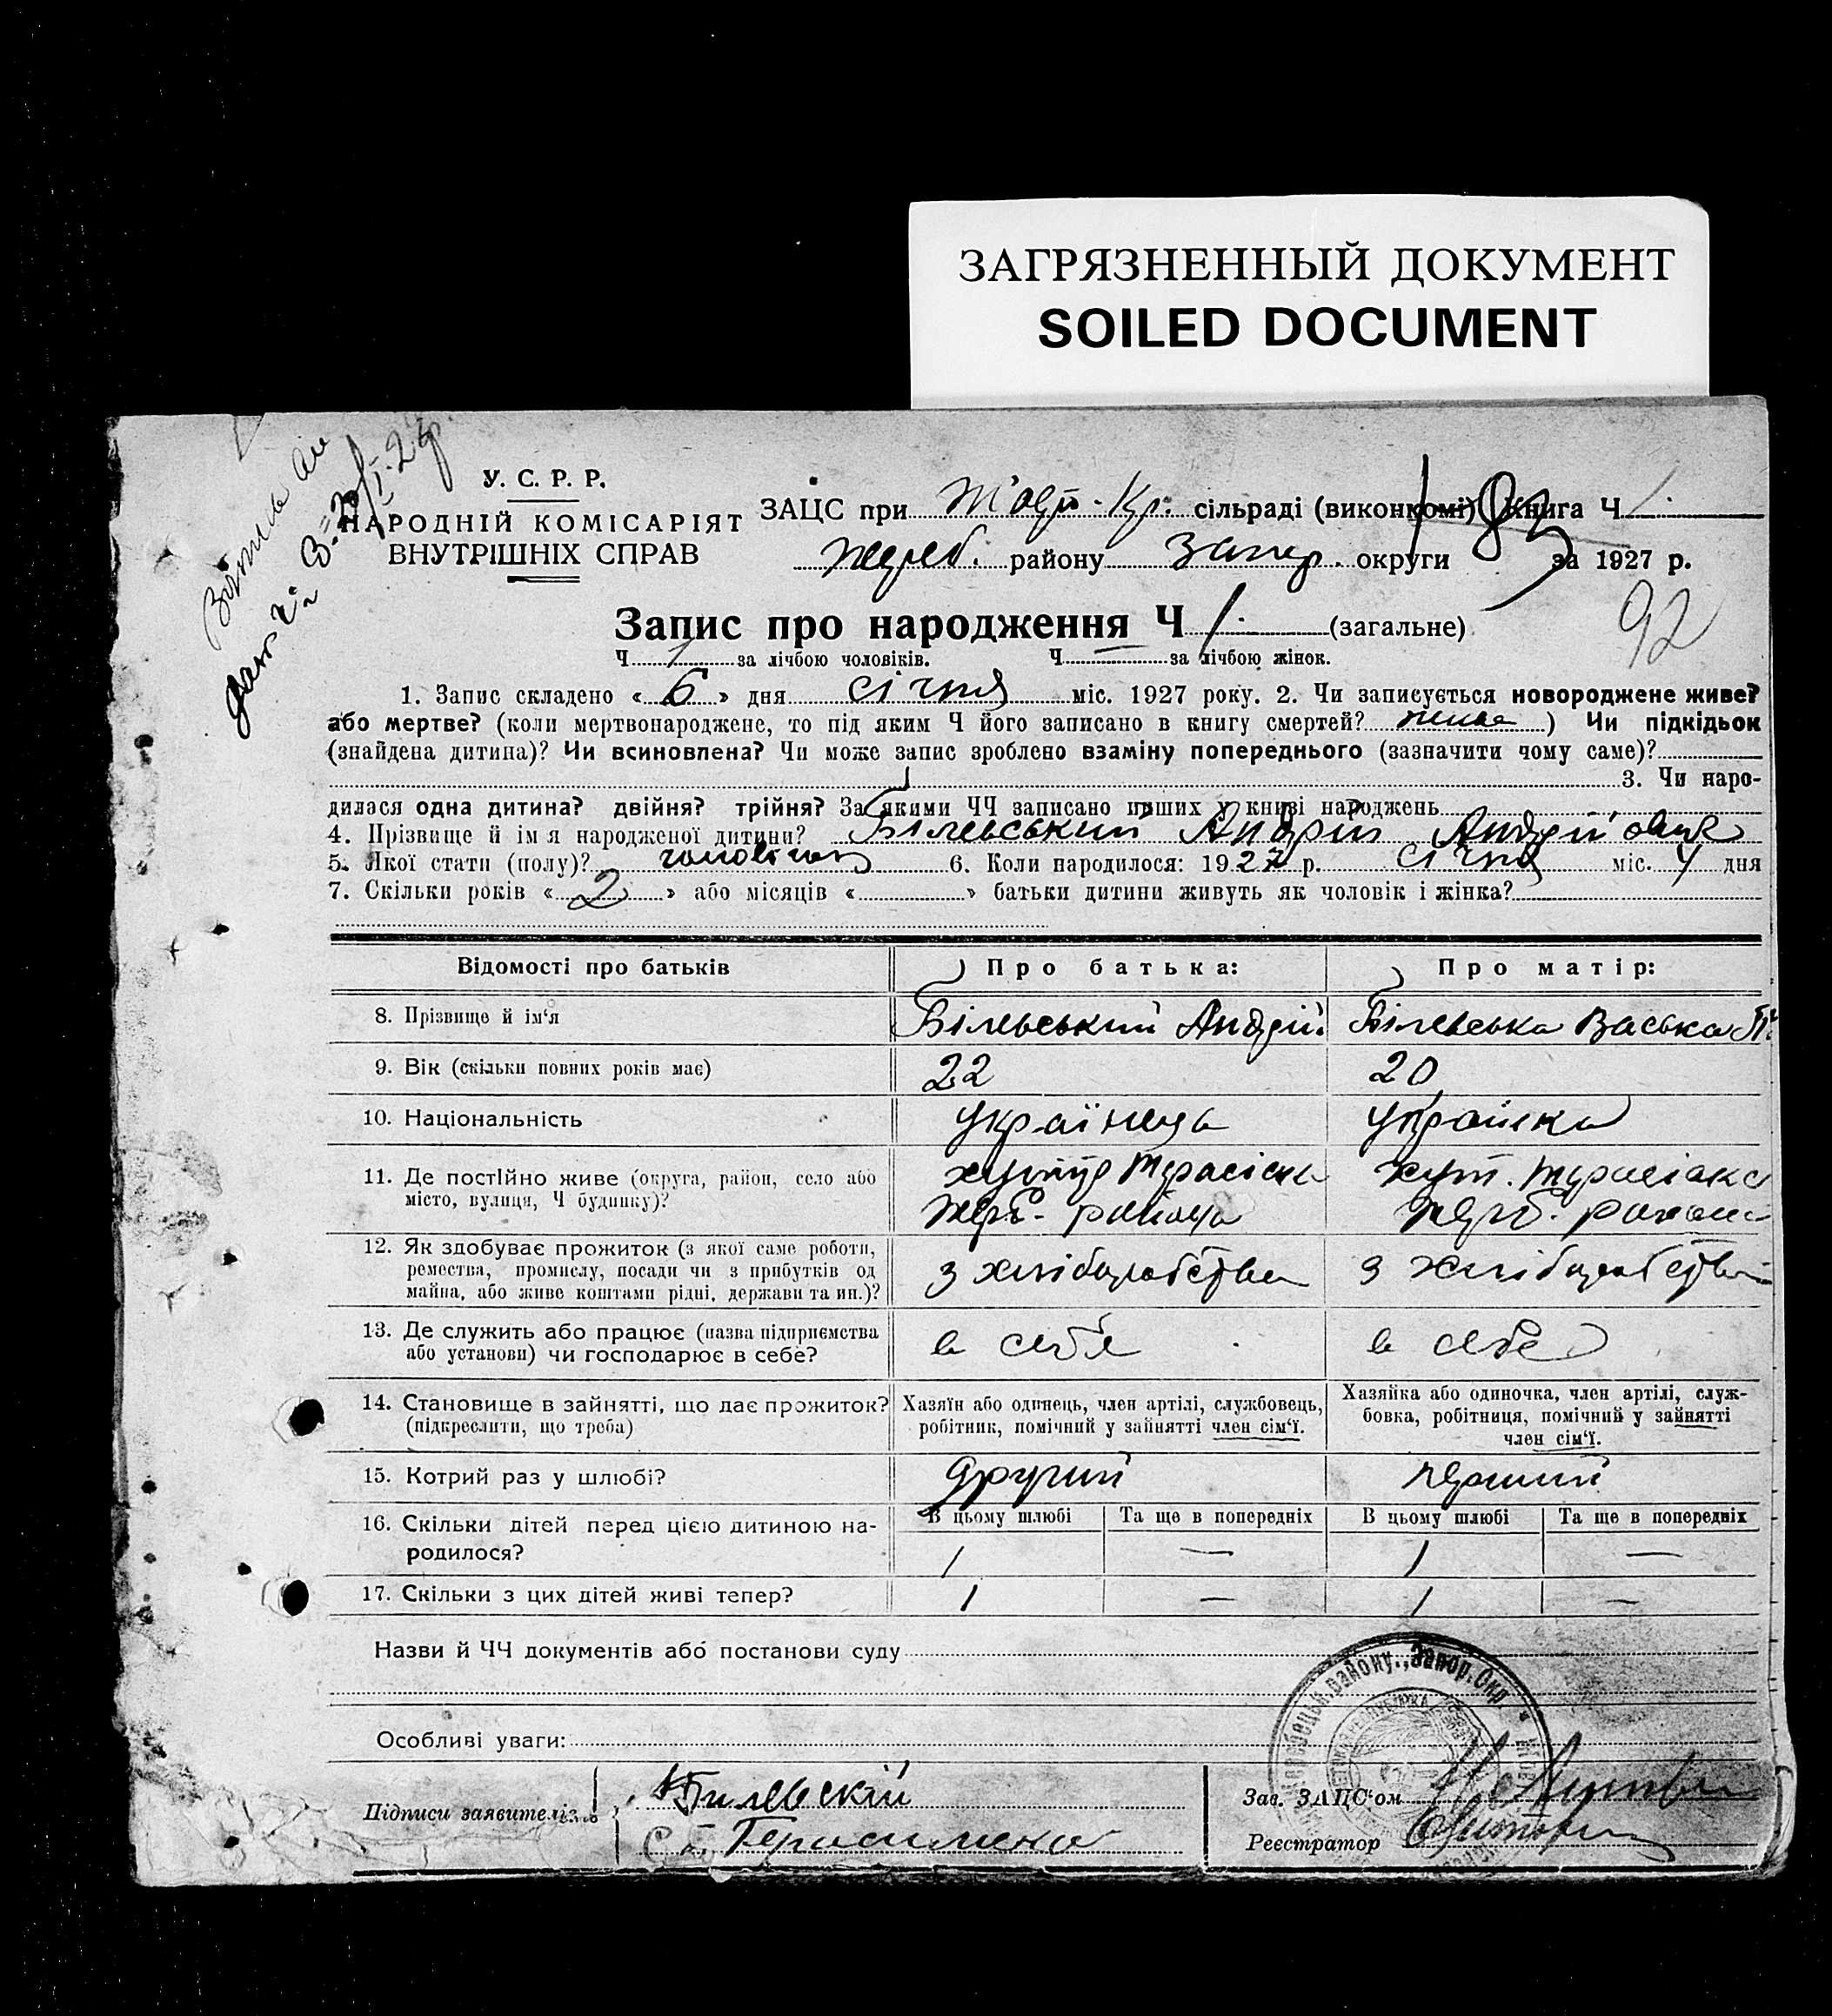 ЗАГРЯЗНЕННЫЙ ДОКУМЕНТ
SOILED DOCUMENT
У. С. Р. Р.
НАРОДНІЙ КОМІСАРІЯТ
ВНУТРІШНІХ СПРАВ
ЗАЦС при сільраді (виконкомі) Книга Ч 1
Жереб. району Запор. округи за 1927 р.
92
Запис про народження Ч 1. (загальне)
Ч 1 за лічбою чоловіків. Ч за лічбою жінок.
1. Запис складено « 6 » дня січня міс. 1927 року. 2. Чи записується новороджене живе?
або мертве? (коли мертвонароджене, то під яким Ч його записано в книгу смертей? живе ) Чи підкідьок
(знайдена дитина)? Чи всиновлена? Чи може запис зроблено взаміну попереднього (зазначити чому саме)?
3. Чи наро-
дилася одна дитина? двійня? трійня? За якими ЧЧ записано инших у книзі народжень
4. Прізвище й ім я народженої дитини? Білевський Андрій Андрійович
5. Якої стати (полу)? чоловічої 6. Коли народилося: 1927 р. січня міс. 4 дня
7. Скільки років « 2 » або місяців « » батьки дитини живуть як чоловік і жінка?
Відомості про батьків Про батька: Про матір:
8. Прізвище й ім‘я Білевський Андрій Білевська Васька
9. Вік (скільки повних років має) 22 20
10. Національність українець українка
11. Де постійно живе (округа, район, село або
місто, вулиця, Ч будинку)?
хутір хут.
Жереб. району Жереб. району
12. Як здобуває прожиток (з якої саме роботи,
ремества, промислу, посади чи з прибутків од
майна, або живе коштами рідні, держави та ин.)?
з хліборобства з хліборобства
13. Де служить або працює (назва підприємства
або установи) чи господарює в себе?
в себе в себе
14. Становище в зайнятті, що дає прожиток?
(підкреслити, що треба)
Хазяїн або одинець, член артілі, службовець,
робітник, помічний у зайнятті член сім‘ї.
Хазяйка або одиночка, член артілі, служ-
бовка, робітниця, помічний у зайнятті
член сім‘ї.
15. Котрий раз у шлюбі? другий перший
16. Скільки дітей перед цією дитиною на-
родилося?
В цьому шлюбі Та ще в попередніх В цьому шлюбі Та ще в попередніх
1 — 1 —
17. Скільки з цих дітей живі тепер? 1 — 1 —
Назви й ЧЧ документів або постанови суду
Особливі уваги:
району „Запор. Окр.
Підписи заявителів Билевский
Герасименко
Зав. ЗАЦС‘ом
Реєстратор